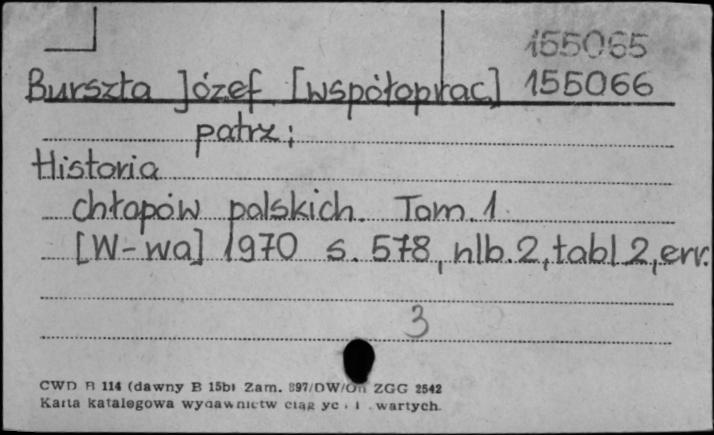 155065
Burszta Józef [współoprac] 155066
patrz:
Historia
chłopów polskich. Tom. 1
[W-wa] 1970 s. 578, nlb. 2, tabl 2, err.
3
CWD B 114 (dawny B 15b) Zam. 897/DW/On ZGG 2542
Karta katalogowa wydawnictw